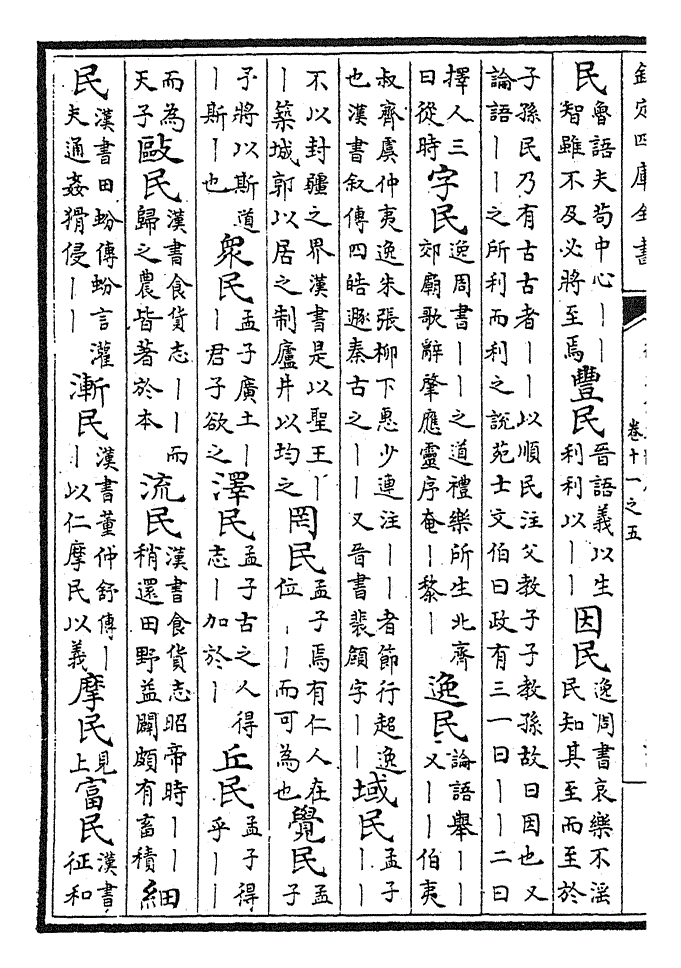 欽定四庫全書 卷十一之五
民魯語夫苟中心丨丨智雖不及必將至焉豐民晉語義以生利利以丨丨因民逸周書哀樂不滛民知其至而至於
子孫民乃有古古者丨丨以順民注父教子子教孫故曰因也又論語丨丨之所利而利之說苑士文伯曰政有三一曰丨丨二曰
擇人三曰從時字民逸周書丨丨之道禮樂所生北齊郊廟歌辭肇應靈序奄丨黎丨逸民論語舉丨丨又丨丨伯夷
叔齊虞仲夷逸朱張柳下惠少連注丨丨者節行超逸也漢書叙傳四皓遯秦古之丨丨又晉書裴頠字丨丨域民孟子丨丨
不以封疆之界漢書是以聖王丨丨築城郭以居之制廬井以均之罔民孟子焉有仁人在位丨丨而可為也覺民孟子
予將以斯道丨斯丨也衆民孟子廣土丨丨君子欲之澤民孟子古之人得志丨加於丨丘民孟子得乎丨丨
而為天子敺民漢書食貨志丨丨而歸之農皆著於本流民漢書食貨志昭帝時丨丨稍還田野益闢頗有畜積細
民漢書田蚡傳蚡言灌夫通姦猾侵丨丨漸民漢書董仲舒傳丨丨以仁摩民以義摩民見上富民漢書征和